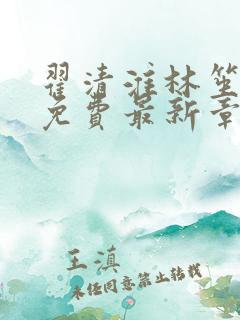 翟清淮林笙
免费最新章
王滇
未经同意禁止转载